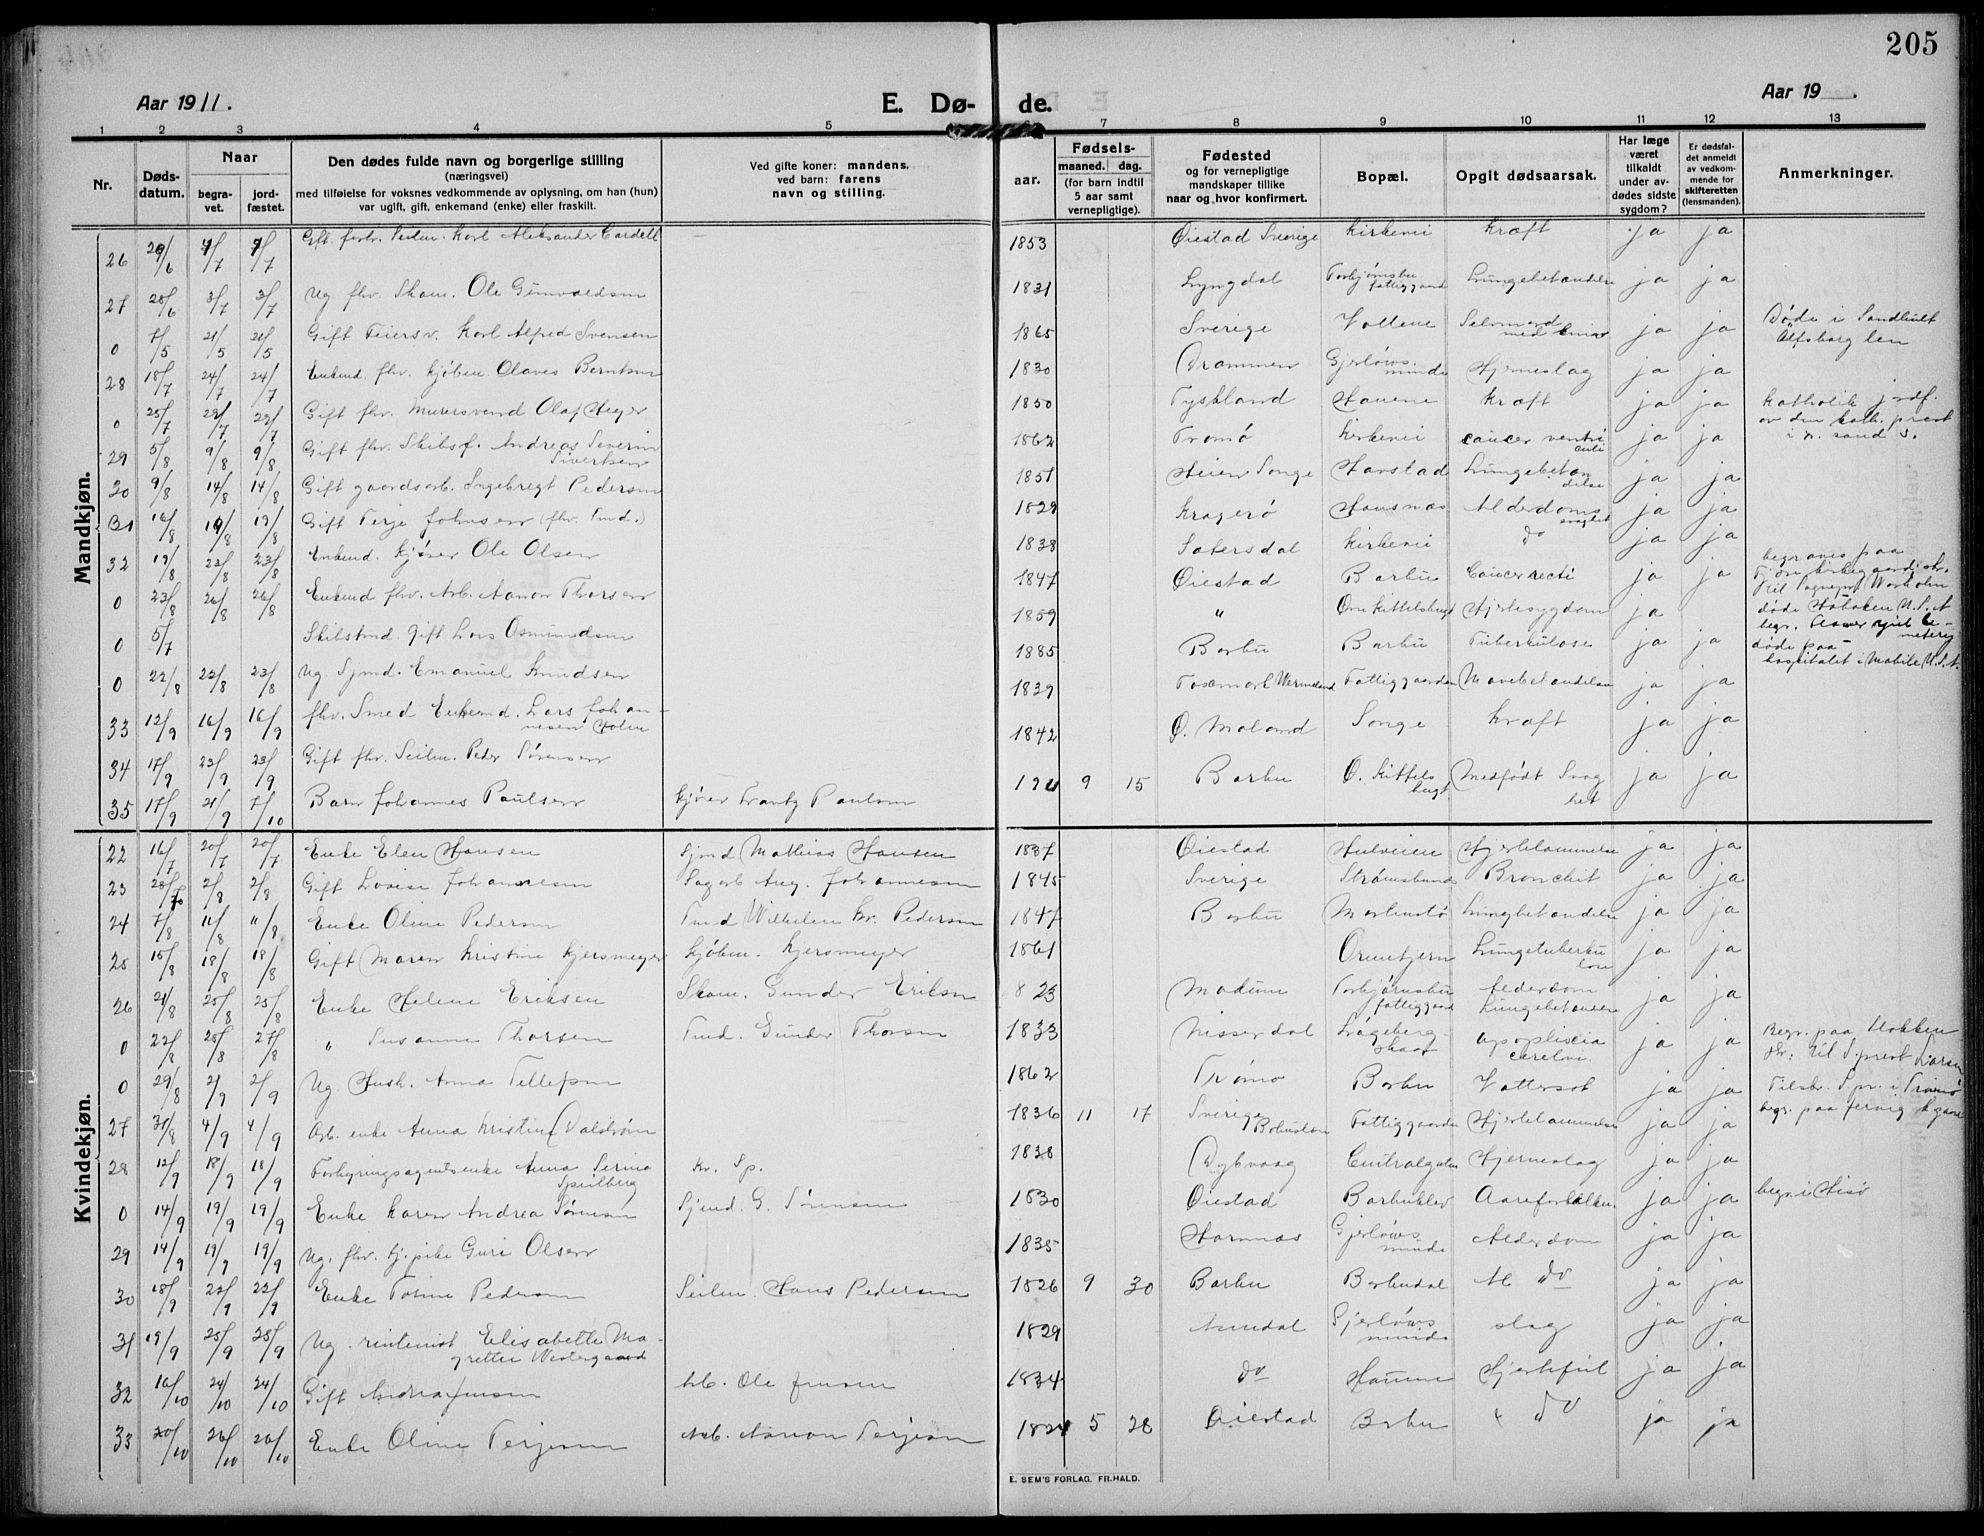 205
Aar 1911.
E. Dø-
de.
Aar 19 .
1 2 3 4 5 6 7 8 9 10 11 12 13
Nr.
Døds-
datum.
Naar
begra-
vet.
jord-
fæstet.
Den dødes fulde navn og borgerlige stilling
(næringsvei)
med tilføielse for voksnes vedkommende av oplysning, om han (hun)
var ugift, gift, enkemand (enke) eller fraskilt.
Ved gifte koner: mandens,
ved barn: farens
navn og stilling.
aar.
Fødsels-
maaned. dag.
(for barn indtil
5 aar samt
vernepligtige).
Fødested
og for vernepligtige
mandskaper tillike
naar og hvor konfirmert.
Bopæl.
Opgit dødsaarsak.
Har læge
været
tilkaldt
under av-
dødes sidste
sygdom?
Er dødsfal-
det anmeldt
av vedkom-
mende for
skifteretten
(lensmanden).
Anmerkninger.
Mandkjøn.
26 29/6 7/7 7/7 Gift Karl Aleksander Cardell 1853 Øiestad Sverige Kirkevei Kræft ja ja
27 28/6 3/7 3/7 Ug. fhv. Skom. Ole Gunvaldsen 1831 Lyngdal Torbjørnsbu fattiggaard Lungebetændelse ja ja
0 7/5 21/5 21/5 Gift Feiersv. Karl Alfred Svensen 1865 Sverige Vollene Selvmord med ja ja Døde i Sandhult Elfsborg len
28 18/7 24/7 24/7 Enkemd. fhv. kjøbm. Olaves Berntsen 1830 Drammen Gjerløws minde Hjerneslag ja ja
0 25/7 29/7 29/7 Gift fhv. Murersvend Olaf Heyer 1850 Tyskland Havene Kræft ja ja Katholik jrdf. av den kath. prest i Kr. sand S.
29 5/8 9/8 9/8 Gift fhv. Skibsf. Andreas Severin Sivertsen 1862 Tromø Kirkevei cancer ventriculi ja ja
30 9/8 14/8 14/8 Gift gaardsarb. Ingebregt Pedersen 1851 Heien Songe Havstad Lungebetændelse ja ja
31 16/8 19/8 19/8 Gift Terje Johnsen (fhv. Tmd.) 1829 Kragerø Hausnæs Alderdoms svaghet ja ja
32 19/8 23/8 23/8 Enkemd. kjører Ole Olsen 1838 Sætersdal Kirkevei do ja ja
0 23/8 26/8 26/8 Enkemd fhv. Arb. Aanon Thorsen 1847 Øiestad Barbu Cancer recti ja ja begraves paa Fjære kirkegaard
0 5/7 Skibstmd. Gift Lars Osmundsen 1859 " Øvre Kittelsbugt Hjertesygdom ja døde Hoboken U.S.A
0 22/8 23/8 23/8 Ug. Sjmd. Emanuel Knudsen 1885 Barbu Barbu Tuberkulose ja ja døde paa hospitalet i Mobile U.S.A.
33 12/9 16/9 16/9 fhv. Smed Enkemd. Lars Johannesen Holm 1839 Fosemark Wermland Fattiggaarden Mavebetændelse ja ja
34 17/9 23/9 23/9 Gift fhv. Seilm. Peder Sørensen 1842 Ø. Moland Songe Kræft ja ja
35 17/9 21/9 7/10 Barn Johannes Paulsen kjører Frantz Paulsen 1911 9 15 Barbu Ø. Kittels bugt Medfødt Svaghet ja ja
Kvindekjøn.
22 16/7 20/7 20/7 Enke Elen Hansen Sjmd Mathias Hansen 1837 Øiestad Hulveien Hjertelammelse ja ja
23 28/7 2/8 2/8 Gift Lovise Johannesen Sagarb Aug. Johannesen 1845 Sverige Strømsbund Bronchit ja ja
24 7/8 11/8 11/8 Enke Oline Pedersen Tmd Wilhelm Kr. Pedersen 1847 Barbu Lungebetændelse ja ja
25 15/8 18/8 18/8 Gift Maren Kristine Kjersmeyer Kjøbm. Kjersmeyer 1861 Ormetjern Lungetuberkulose ja ja
26 21/8 25/8 25/8 Enke Helene Eriksen Skom. Gunder Eriksen 823 Modum Torbjørnsbu fattiggaard Alderdom Lungebetændelse ja ja
0 22/8 25/8 27/8 " Susanne Thorsen Tmd. Gunder Thorsen 1833 Nisserdal apoplexia cerebri ja ja Begr. paa Flokken
0 29/8 2/9 2/9 Ug. Hush. Anna Tellefsen 1862 Tromø Barbu Vattersot ja ja Tilstr. Spr. i Tromø begr. paa Færvig kgaard
27 31/8 4/9 4/9 Arb. enke Anna Kristine Dalstrøm 1836 11 17 Sverige Bohuslen Fattiggaarden Hjertelammelse ja ja
28 12/9 18/9 18/9 Forhyringsagentsenke Anna Serine Speilberg Kr. Sp. 1838 Dybvaag Centralgaten Hjerneslag ja ja
0 14/9 19/9 19/9 Enke Karen Andrea Sørensen Sjmd. G. Sørensen 1830 Øiestad Barbuklev Aareforkalkn. ja ja begr. i Hisø
29 14/9 19/9 19/9 Ug. fhv. tj. pike Guri Olsen 1835 Hornnæs Gjerløws minde Alderdom ja ja
30 18/9 22/9 22/9 Enke Torine Pedersen Seilm. Hans Pedersen 1826 9 30 Barbu Barbudal Al do ja ja
31 19/9 25/9 25/9 Ug. rentenist Elisabette Magrette Westergaard 1829 Arendal Gjerløws minde slag ja ja
32 16/10 24/10 24/10 Gift Andrea Jensen Arb. Ole Jensen 1834 do Havene Hjertefeil ja ja
33 20/10 26/10 26/10 Enke Oline Terjesen Arb. Aanon Terjesen 1821 5 28 Øiestad Barbu " do ja ja
E. SEM'S FORLAG, FR.HALD.